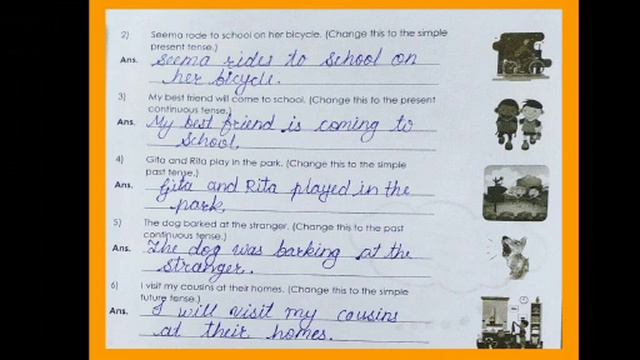 2) Seema rode to school on her bicycle. (Change this to the simple
present tense.)
Ans. Seema rides to school on
her bicycle.
3) My best friend will come to school. (Change this to the present
continuous tense.)
Ans. My best friend is coming to
school.
4) Gita and Rita play in the park. (Change this to the simple
past tense.)
Ans. Gita and Rita played in the
park.
5) The dog barked at the stranger. (Change this to the past
continuous tense.)
Ans. The dog was barking at the
stranger.
6) I visit my cousins at their homes. (Change this to the simple
future tense.)
Ans. I will visit my cousins
at their homes.